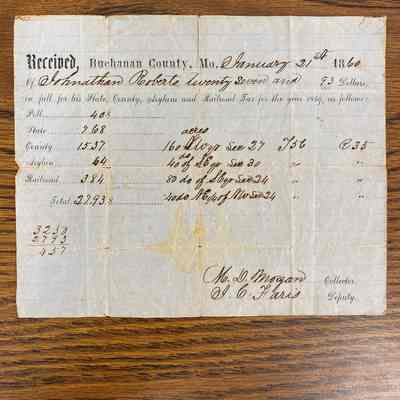 Received, Buchanan County, Mo. January 21st 1860
Of Johnathan Roberts twenty seven and 93 Dollars,
in full for his State, County, Asylum and Railroad Tax for the year 1859, as follows:
Poll, 40
State 7.68 acres
County 15.37 160 qr Sec 27 T56 R35
Asylum 64 40 do of qr Sec 30 " "
Railroad 384 80 do of S qr Sec 24 " "
Total, 27.93 40 do N of N Sec 24 " "
3250
2793
457
M. D. Morgan Collector.
J. C. Faris Deputy.